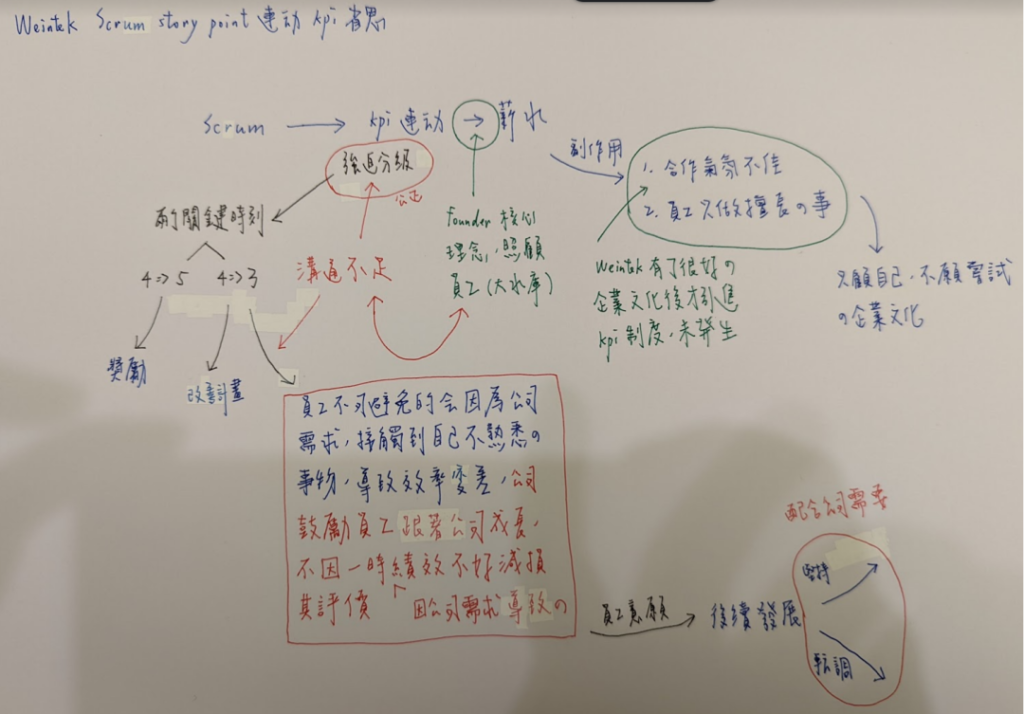 Weintek Scrum story point 連动 kpi 省思
Scrum → kpi 連动 → 薪水
強迫分級
公正
副作用
1. 合作氣氛不佳
2. 員工只做擅長の事
兩个關鍵時刻
4=>5 4=>3
溝通不足
founder 核心
理念, 照顧
員工(大水庫)
Weintek 有了很好の
企業文化後才引進
kpi 制度, 未發生
只顧自己, 不願嘗試
の企業文化
獎勵
改善計畫
員工不可避免的会因為公司
需求, 接觸到自己不熟悉の
事物, 導致效率變差, 公司
鼓勵員工跟著公司成長,
不因一時績效不好減損
其評價 因公司需求導致の
員工意願
後續發展
配合公司需要
堅持
転調